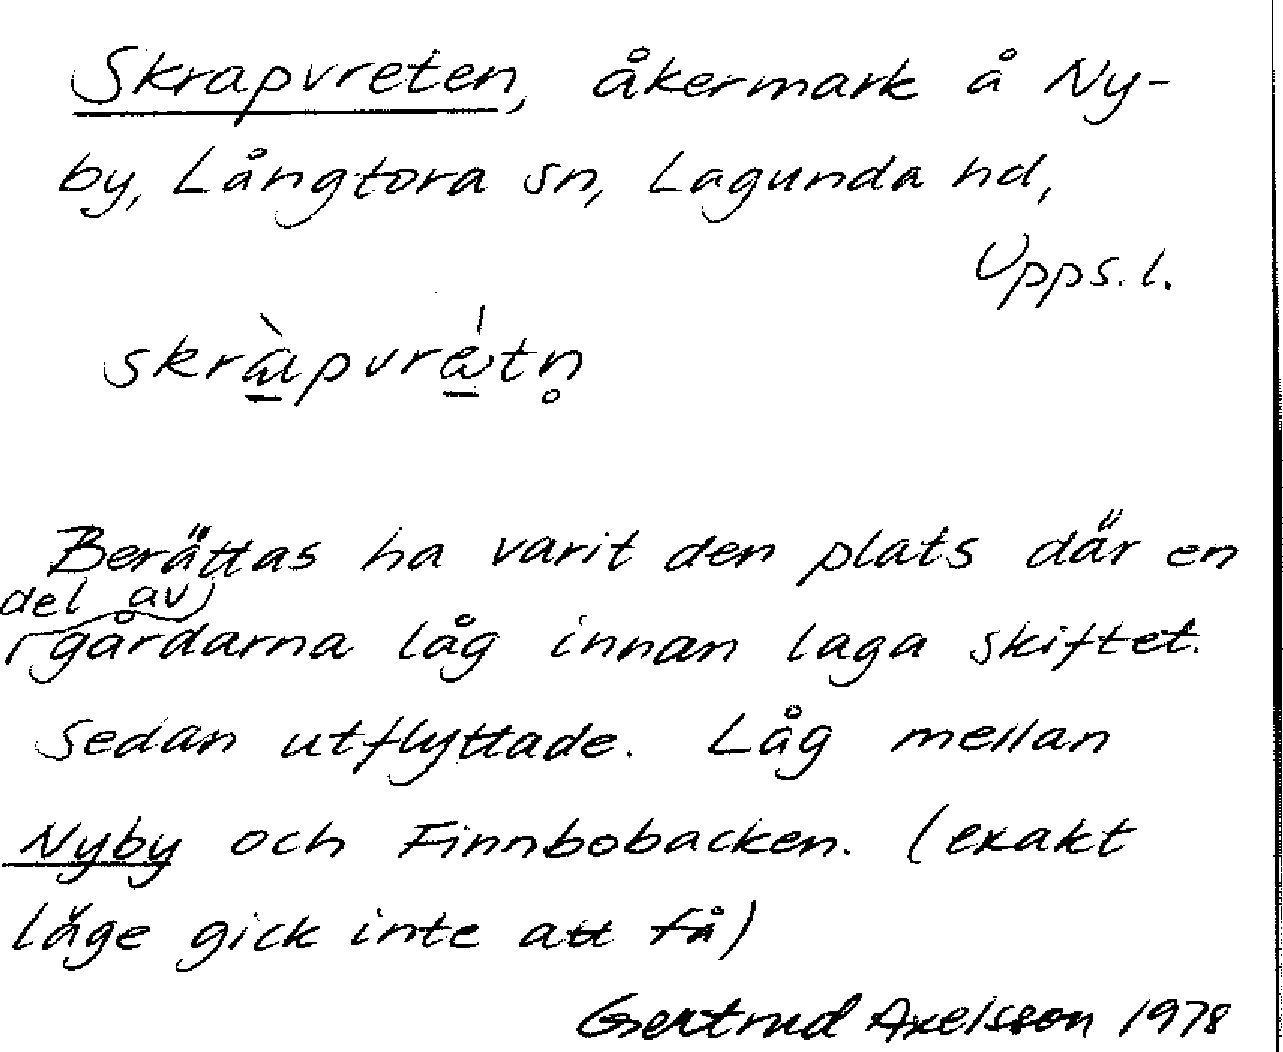 Skrapvreten, åkermark å Ny-
by, Långtora sn, Lagunda hd,
Upps. l.
skràpvrétn̥
Berättas ha varit den plats där en
del av
gårdarna låg innan laga skiftet.
Sedan utflyttade. Låg mellan
Nyby och Finnbobacken. (exakt
läge gick inte att få)
Gertrud Axelsson 1978